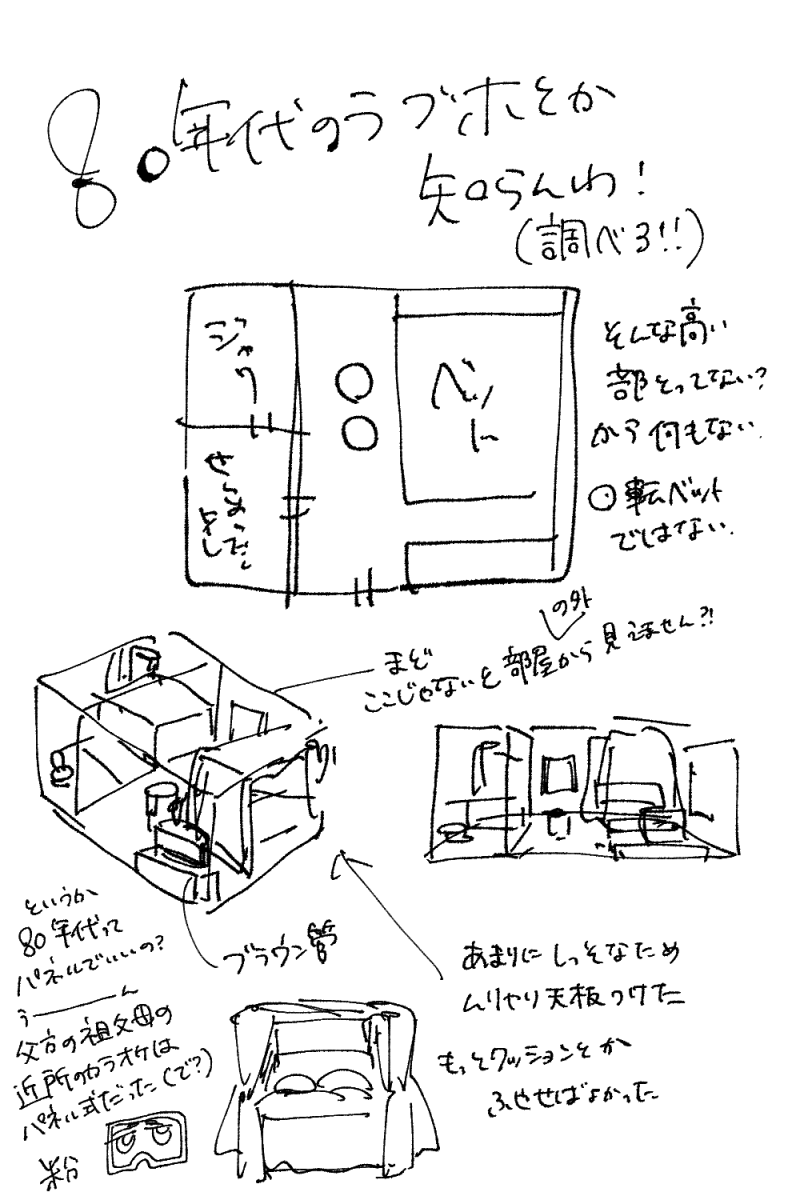 80年代のラブホとか
知らんわ！
(調べろ!!)
ジャグ
ベット
せんめんだい
よし
そんな高い
部とってない?
から何もない.
○転ベット
ではない.
まど
ここじゃないと部屋の外から見えません?!
というか
80年代って
パネルでいいの?
うーーーん
父方の祖父母の
近所のカラオケは
パネル式だった(で?)
粉
ブラウン管
あまりにしっそなため
んりやり天板つけた
もっとクッションとか
ふやせばよかった